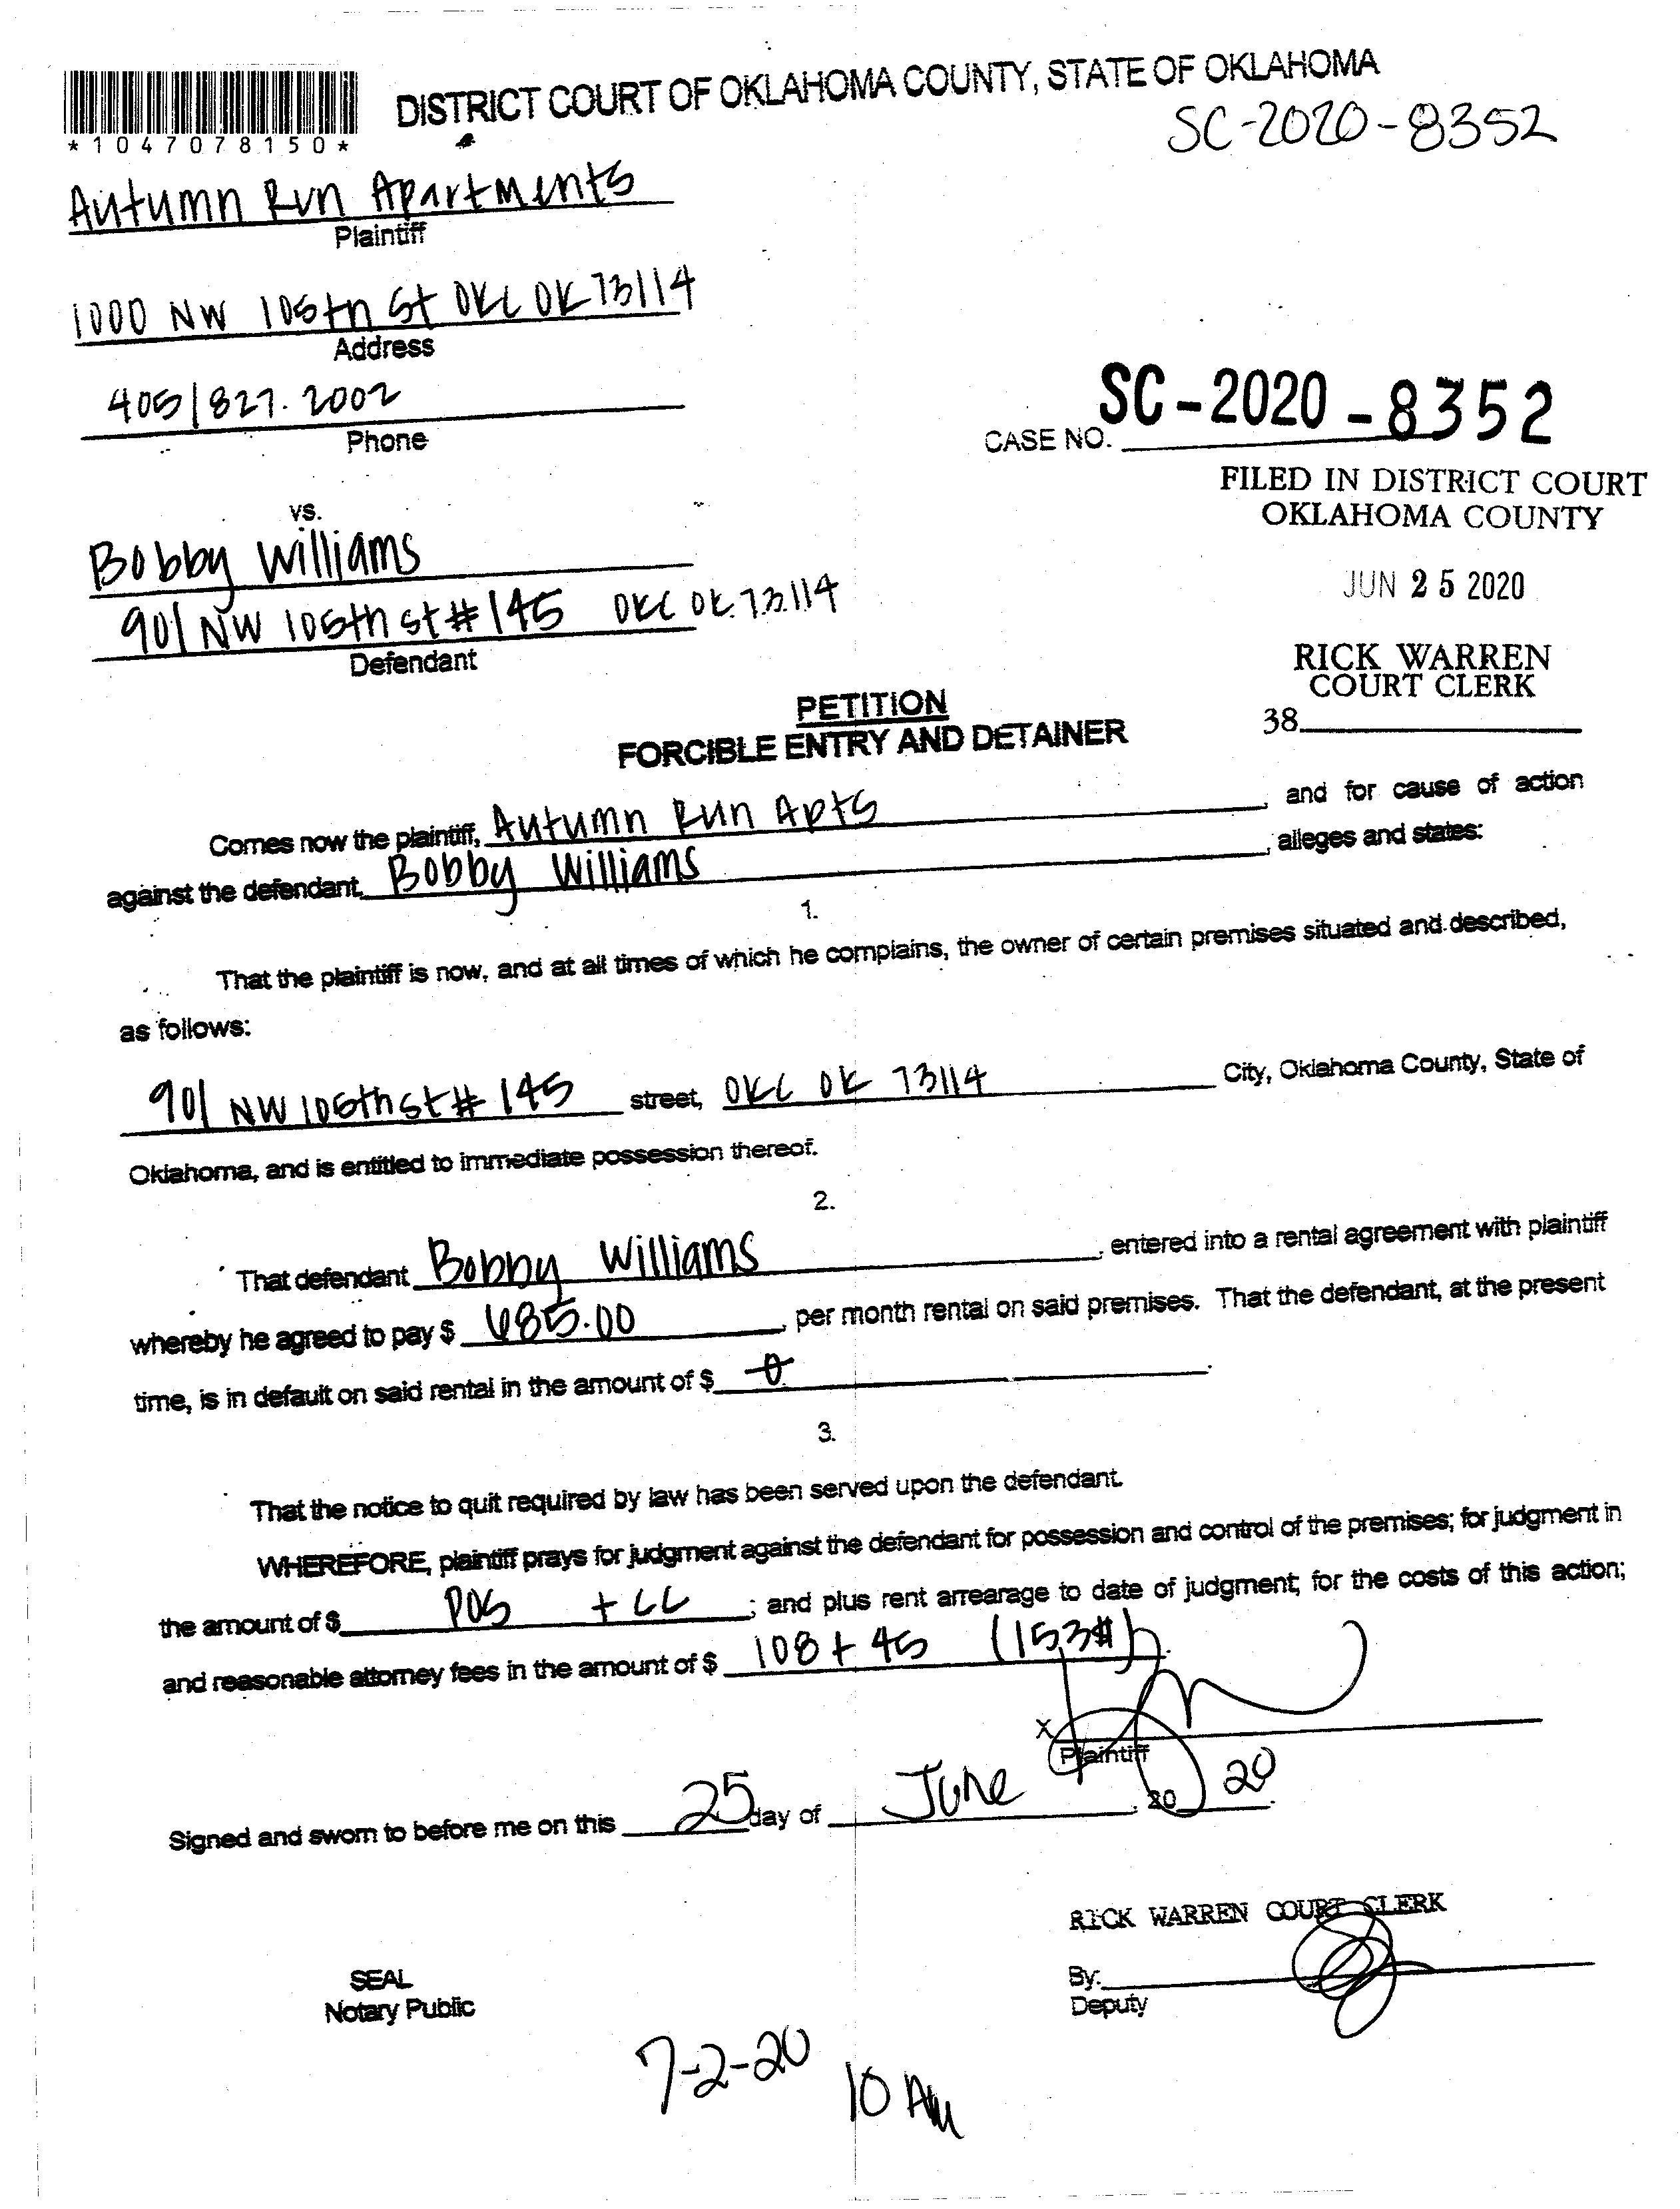 DISTRICT COURT OF OKLAHOMA COUNTY, STATE OF OKLAHOMA
*1047078150*
SC-2020-8352
Autumn Run Apartments
Plaintiff
1000 NW 105th St OKC OK 73114
Address
405/827.2002
Phone
SC-2020-8352
CASE NO.
FILED IN DISTRICT COURT
OKLAHOMA COUNTY
JUN 25 2020
RICK WARREN
COURT CLERK
38
vs.
Bobby Williams
901 NW 105th st #145 OKC OK 73114
Defendant
PETITION
FORCIBLE ENTRY AND DETAINER
Comes now the plaintiff, Autumn Run Apts, and for cause of action
against the defendant, Bobby Williams, alleges and states:
1.
That the plaintiff is now, and at all times of which he complains, the owner of certain premises situated and described,
as follows:
901 NW 105th st # 145 street, OKC OK 73114 City, Oklahoma County, State of
Oklahoma, and is entitled to immediate possession thereof.
2.
That defendant Bobby Williams, entered into a rental agreement with plaintiff
whereby he agreed to pay $ 685.00, per month rental on said premises. That the defendant, at the present
time, is in default on said rental in the amount of $ 0.
3.
That the notice to quit required by law has been served upon the defendant.
WHEREFORE, plaintiff prays for judgment against the defendant for possession and control of the premises; for judgment in
the amount of $ POS + CC; and plus rent arrearage to date of judgment; for the costs of this action;
and reasonable attorney fees in the amount of $ 108 + 45 (153#).
X
Plaintiff
Signed and sworn to before me on this 25 day of June, 20 20.
RICK WARREN COURT CLERK
By:
Deputy
SEAL
Notary Public
7-2-20
10 AM